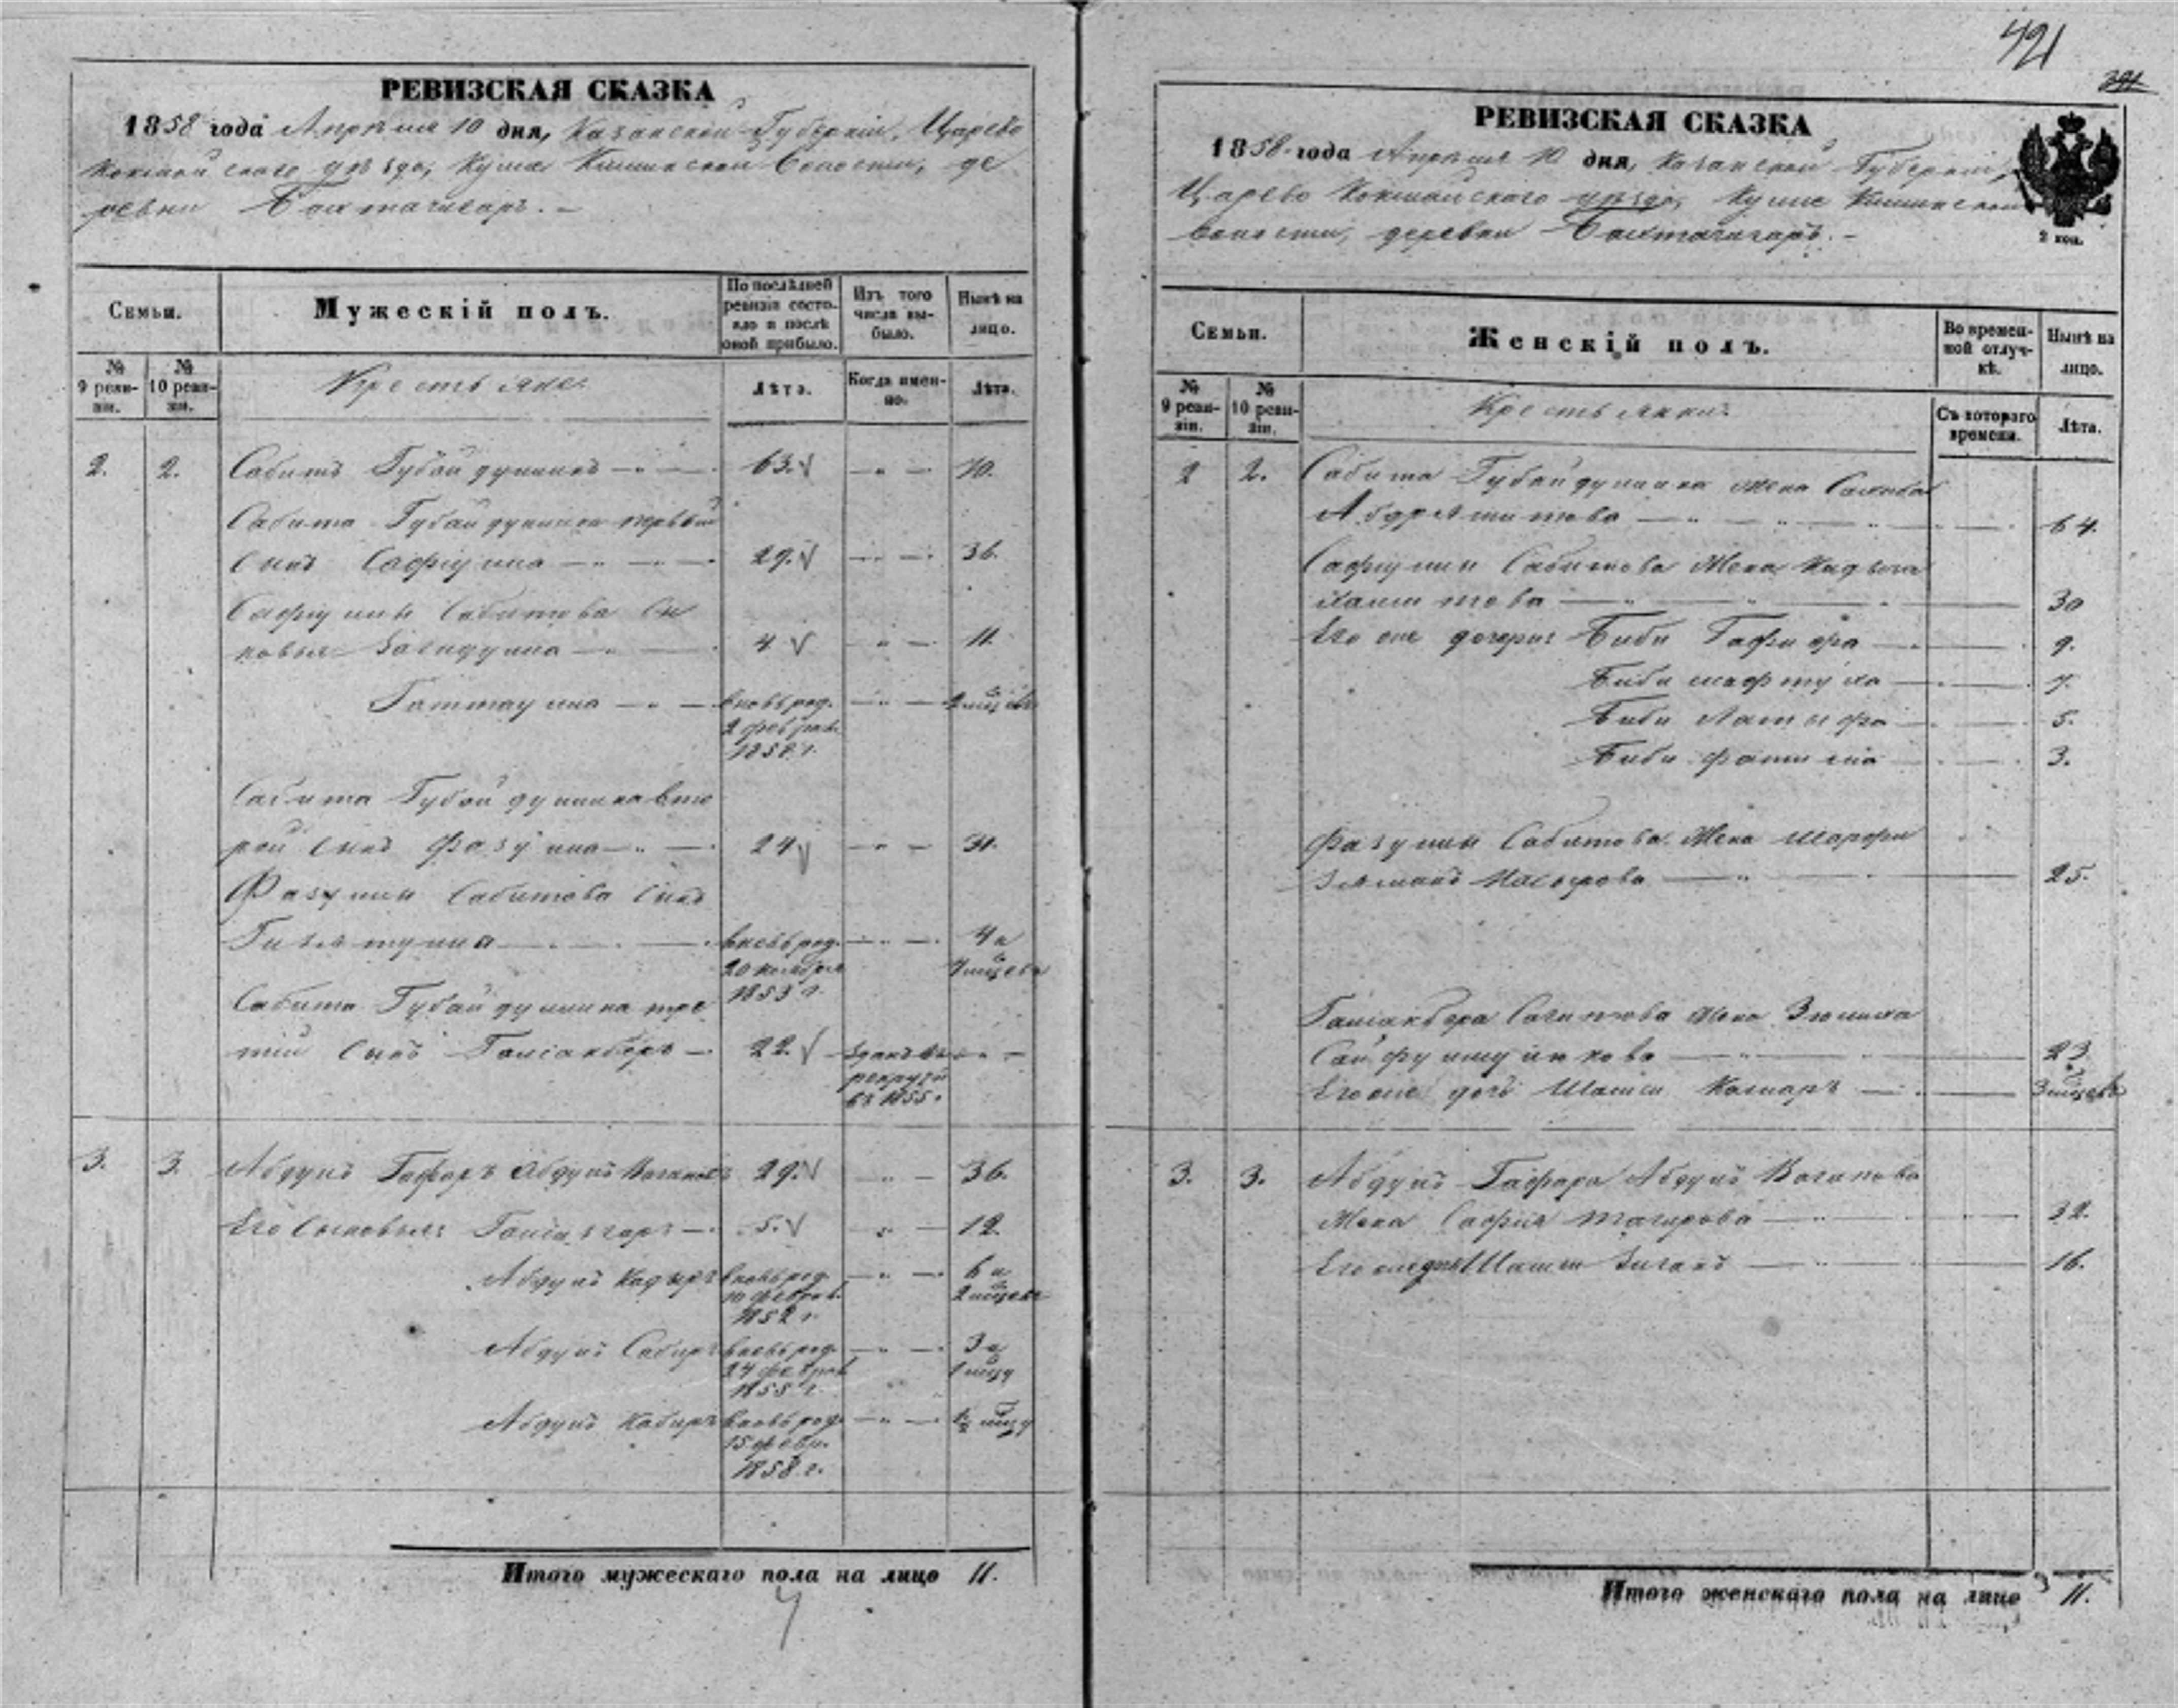 421
391
РЕВИЗСКАЯ СКАЗКА
1858 года Апреля 10 дня, Казанской Губерніи, Царево
кокшайскаго уезда, Кушна волости, де
ревни
Семьи.
Мужескій полъ.
По послѣдней ревизіи состояло и послѣ оной прибыло.
Изъ того числа выбыло.
Нынѣ на лицо.
№ 9 ревизіи.
№ 10 ревизіи.
Крестьяне.
Лѣта.
Когда именно.
Лѣта.
2. 2. Сабитъ Губайдуллинъ 63. 70.
Сабита Губайдуллина первый
сынъ Сафіулла 29. 36.
Сафіуллы Сабитова сы
новья Загидулла 4 11.
Гаттаулла вновь род. 2 мцевъ
2 феврал.
1858 г.
Сабита Губайдуллина вто
рой сынъ Фазулла 24 31.
Фазуллы Сабитова сынъ
Гизятулла вновь род. 4 и
20 ноября 4 мцевъ
1853 г.
Сабита Губайдуллина тре
тій сынъ Галіакберъ 22. зданъ въ
рекруты
въ 1855.
3. 3. Абдулъ Гафаръ Абдулъ Вагаповъ 29. 36.
Его сыновья: 5. 12.
Абдулъ Кадыръ вновь род. 6 и
10 феврал. 2 мцевъ
1852 г.
Абдулъ Сабиръ вновь род. 3 и
24 феврал 1 мцу
1855 г.
Абдулъ Кабиръ вновь род. мцу
15 февр.
1858 г.
Итого мужескаго пола на лицо 11.
РЕВИЗСКАЯ СКАЗКА
1858 года Апреля 10 дня, Казанской Губерніи,
Царево Кокшайскаго уезда, Кушна
волости, деревни
2 коп.
Семьи.
Женскій полъ.
Во временной отлучкѣ.
Нынѣ на лицо.
№ 9 ревизіи.
№ 10 ревизіи.
Крестьянки:
Съ котораго времени.
Лѣта.
2 2. Сабита Губайдуллина жена
64.
Сафіуллы Сабитова жена
30
Его же дочери: Биби Гафифа 9.
Биби 7.
Биби Латыфа 5.
Биби Фатыма 3.
Фазуллы Сабитова жена Шарафи
25.
Галіакбера Сабитова жена
23
Его же дочь Шамси Камаръ 3 мцевъ
3. 3. Абдулъ Гафара Абдулъ Вагапова
жена Сафія Тагирова 32.
Его же дочь Шамси 16.
Итого женскаго пола на лицо 11.